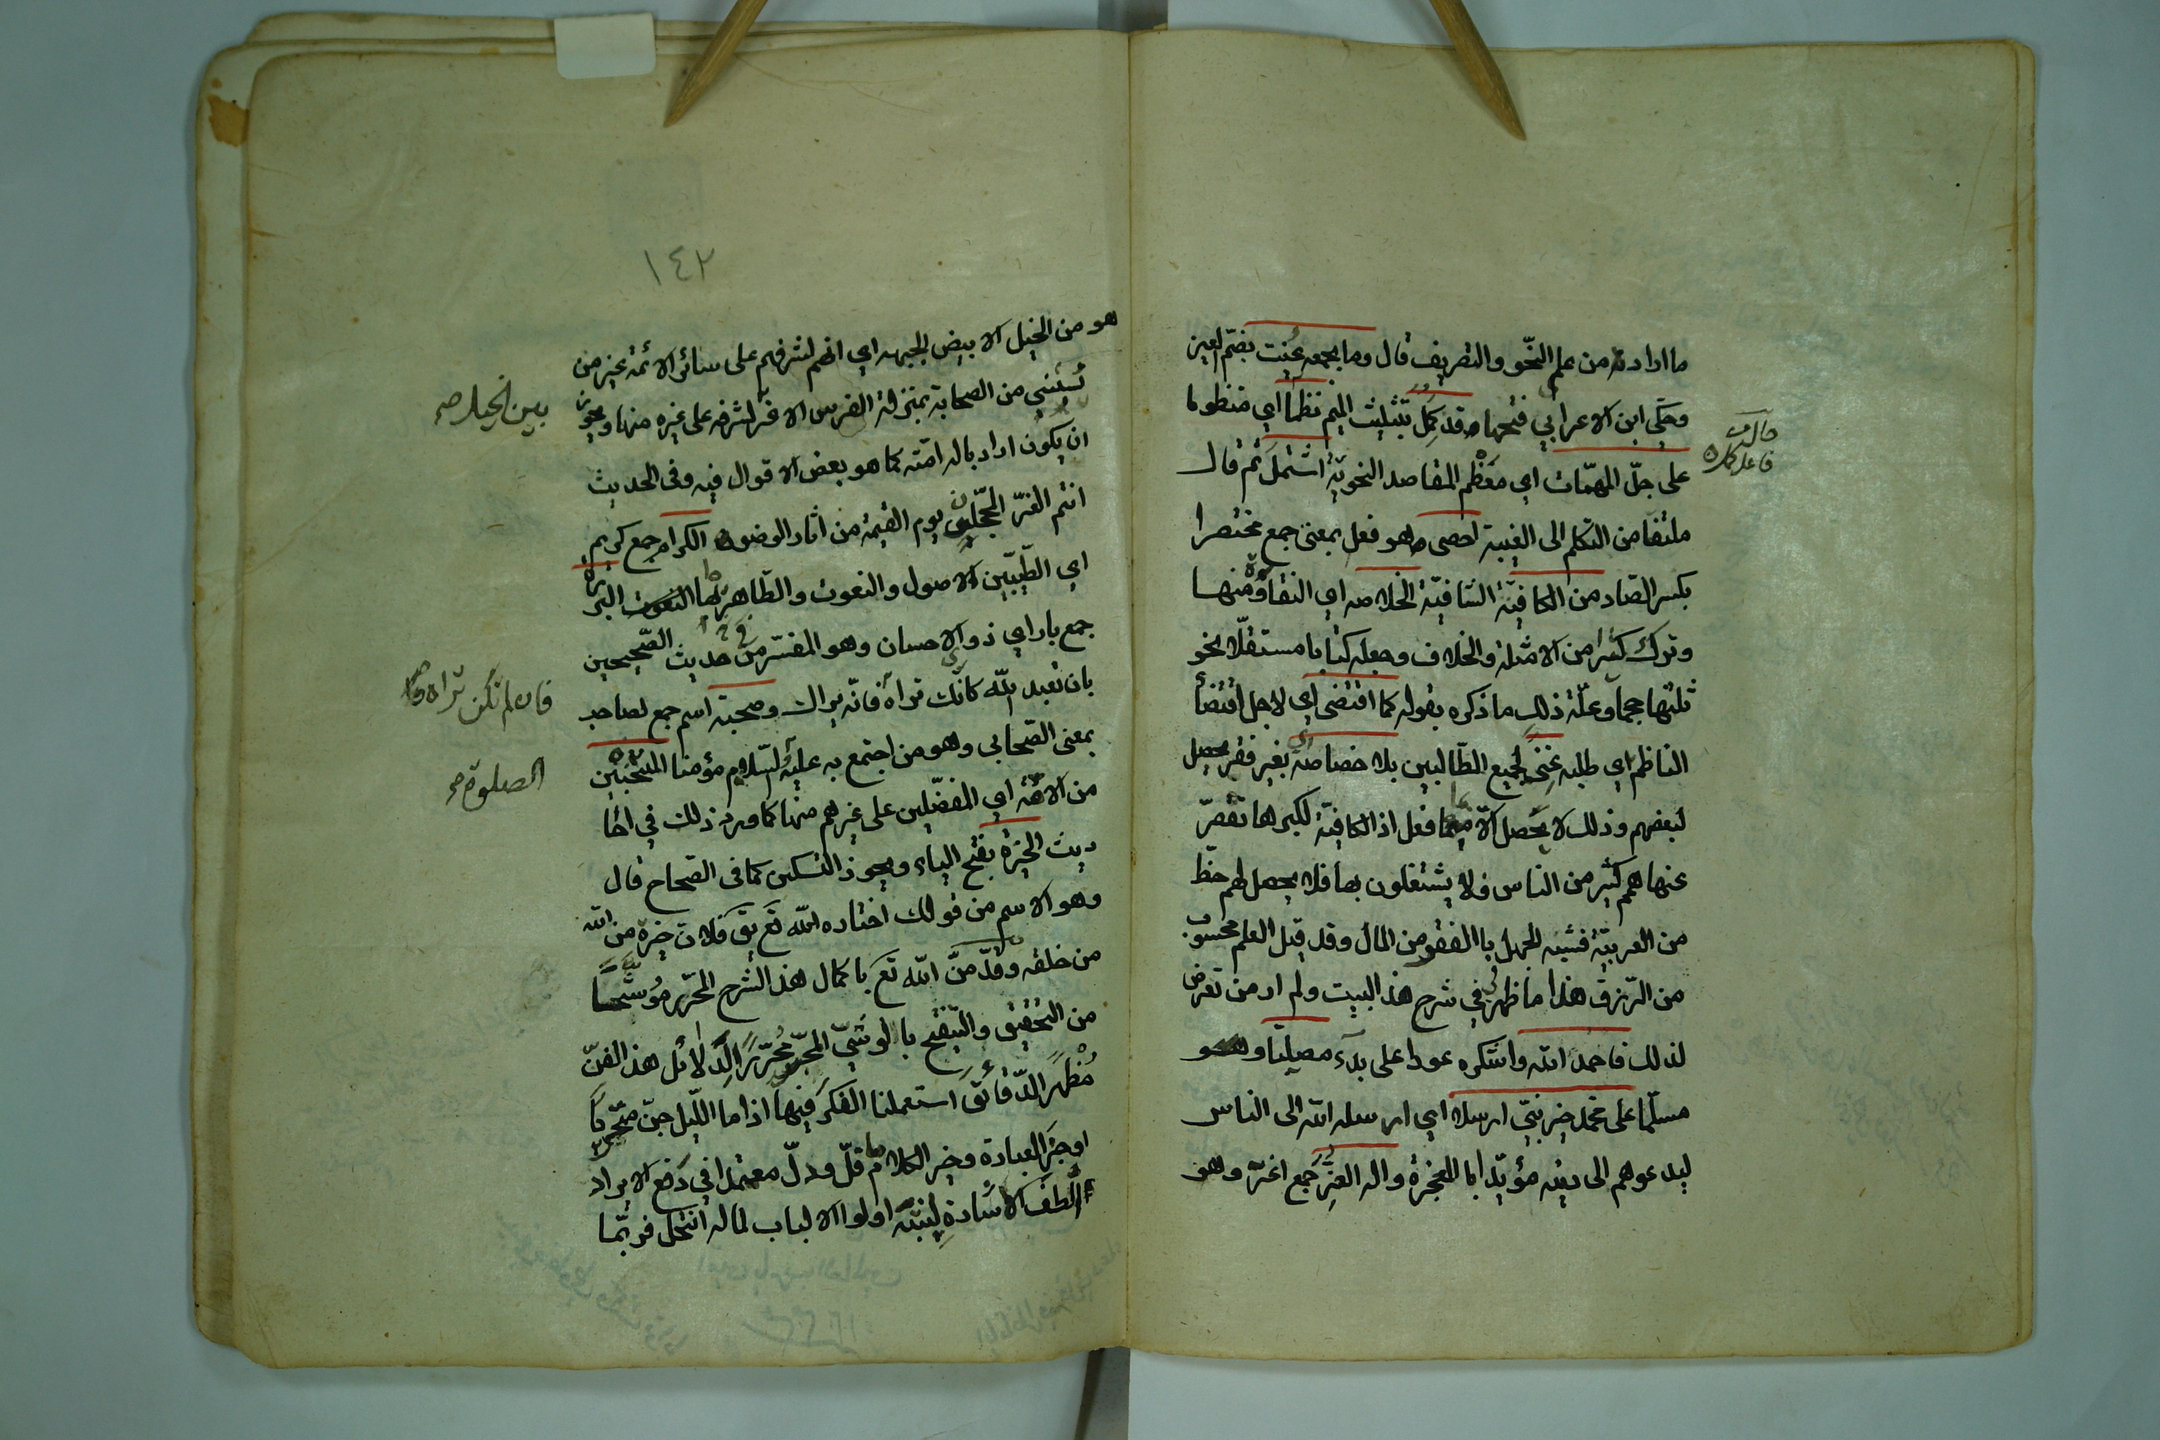 ما اراد ته من علم النحو والتصريف قال وما بجمعه عُنيت بضم العين
وحكي ابن الاعرابي فتحها قد كمل بتثليث الميم نظما اي منظوما
على جلّ المهمّات اي معظم المقاصد النحويّة اشتمل ثم قال
ملتفا من التكلم الى الغيبة احصى هو فعل بمعنى جمع مختصرا
بكسر الصّاد من الكافية الشافيّة الخلاصه اي النقاوة منها
وترك كثيرا من الامثلة والخلاف وجعله كتابا مستقلّا نحو
ثلثها حجما وعلّة ذلك ما ذكره بقوله كما اقتضى اي لاجل اقتضاء
الناظم اي طلبه غنى لجميع الطّالبين بلا خصاصه اي بغير فقر يحصل
لبعضهم وذلك لا يحصل الا بما فعل اذ الكافيّة لكبرها تقصر
عنها همم كثير من الناس فلا يشتغلون بها فلا يحصل لهم حظّ
من العربيّة فشبه الجهل بالفقر من المال وقد قيل العلم محسوب
من الرّزق هذا ما ظهر لي في شرح هذا البيت ولم ار من تعرض
لذلك فاحمد الله واشكره عودا على بدء مصليا و
مسلّما على محمد خير نبيّ ارسلا اي ارسله الله الى الناس
ليدعوهم الى دينه مؤيّدا بالمعجزة واله الغرّ جمع اغرّ وهو
قالت
١٤٢
هو من الخيل الابيض الجبهه اي انهم لشرفهم على سائر الائمة غير من
يُستثنى من الصحابة بمنزلة الفرس الاغر لشرفه على غيره منها ويجوز
ان يكون اراد باله امته كما هو بعض الاقوال فيه وفى الحديث
انتم الغرّ المحجّلين يوم القيمة من اثار الوضوء الكرام جمع كريم
اي الطّيبّين الاصول والنعوت والطّاهرين البررة
جمع بار اي ذو الاحسان وهو المفسّر في حديث الصّحيحين
بان تعبد الله كانّك تراه فانّه يراك وصحبه اسم جمع لصاحب
بمعنى الصّحابي وهو من اجتمع به عليه السّلام مؤمنا المنتخبين
من الامّة اي المفضّلين على غيرهم منها كما ورد ذلك في احا
ديث الخيرة بفتح الياء ويجوز التسكين كما فى الصحاح قال
وهو الاسم من قولك اختاره الله تع يق فلان خيرة من الله
من خلقه وقد منّ الله تع باكمال هذا الشرح المحرّر موشّحاً
من التحقيق والتنقيح بالوشيّ المحبّر محرّرا لدلائل هذا الفنّ
مظهرا لدّقائق استعملنا الفكر فيها اذا ما اللّيل جنّ متحرّيا
اوجز العبارة وخير الكلام ما قلّ ودلّ معتمدا في دفع الايراد
الطف الاشارة لينتبّه اولوا الالباب لما له انتحل فربّما
بين الخيل صح
فان لم تكن تراه
الصلوة صح